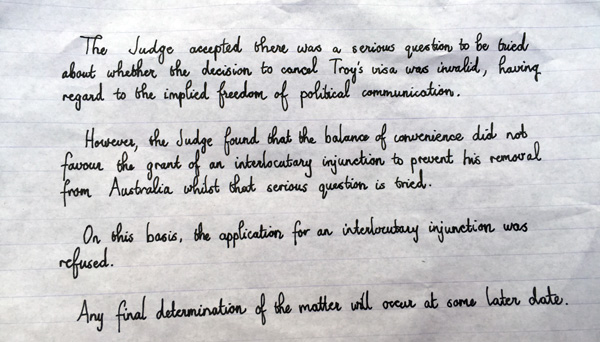 The Judge accepted there was a serious question to be tried
about whether the decision to cancel Troy's visa was invalid, having
regard to the implied freedom of political communication.
However, the Judge found that the balance of convenience did not
favour the grant of an interlocatary injunction to prevent his removal
from Australia whilst that serious question is tried.
On this basis, the application for an interlocutary injunction was
refused.
Any final determination of the matter will occur at some later date.